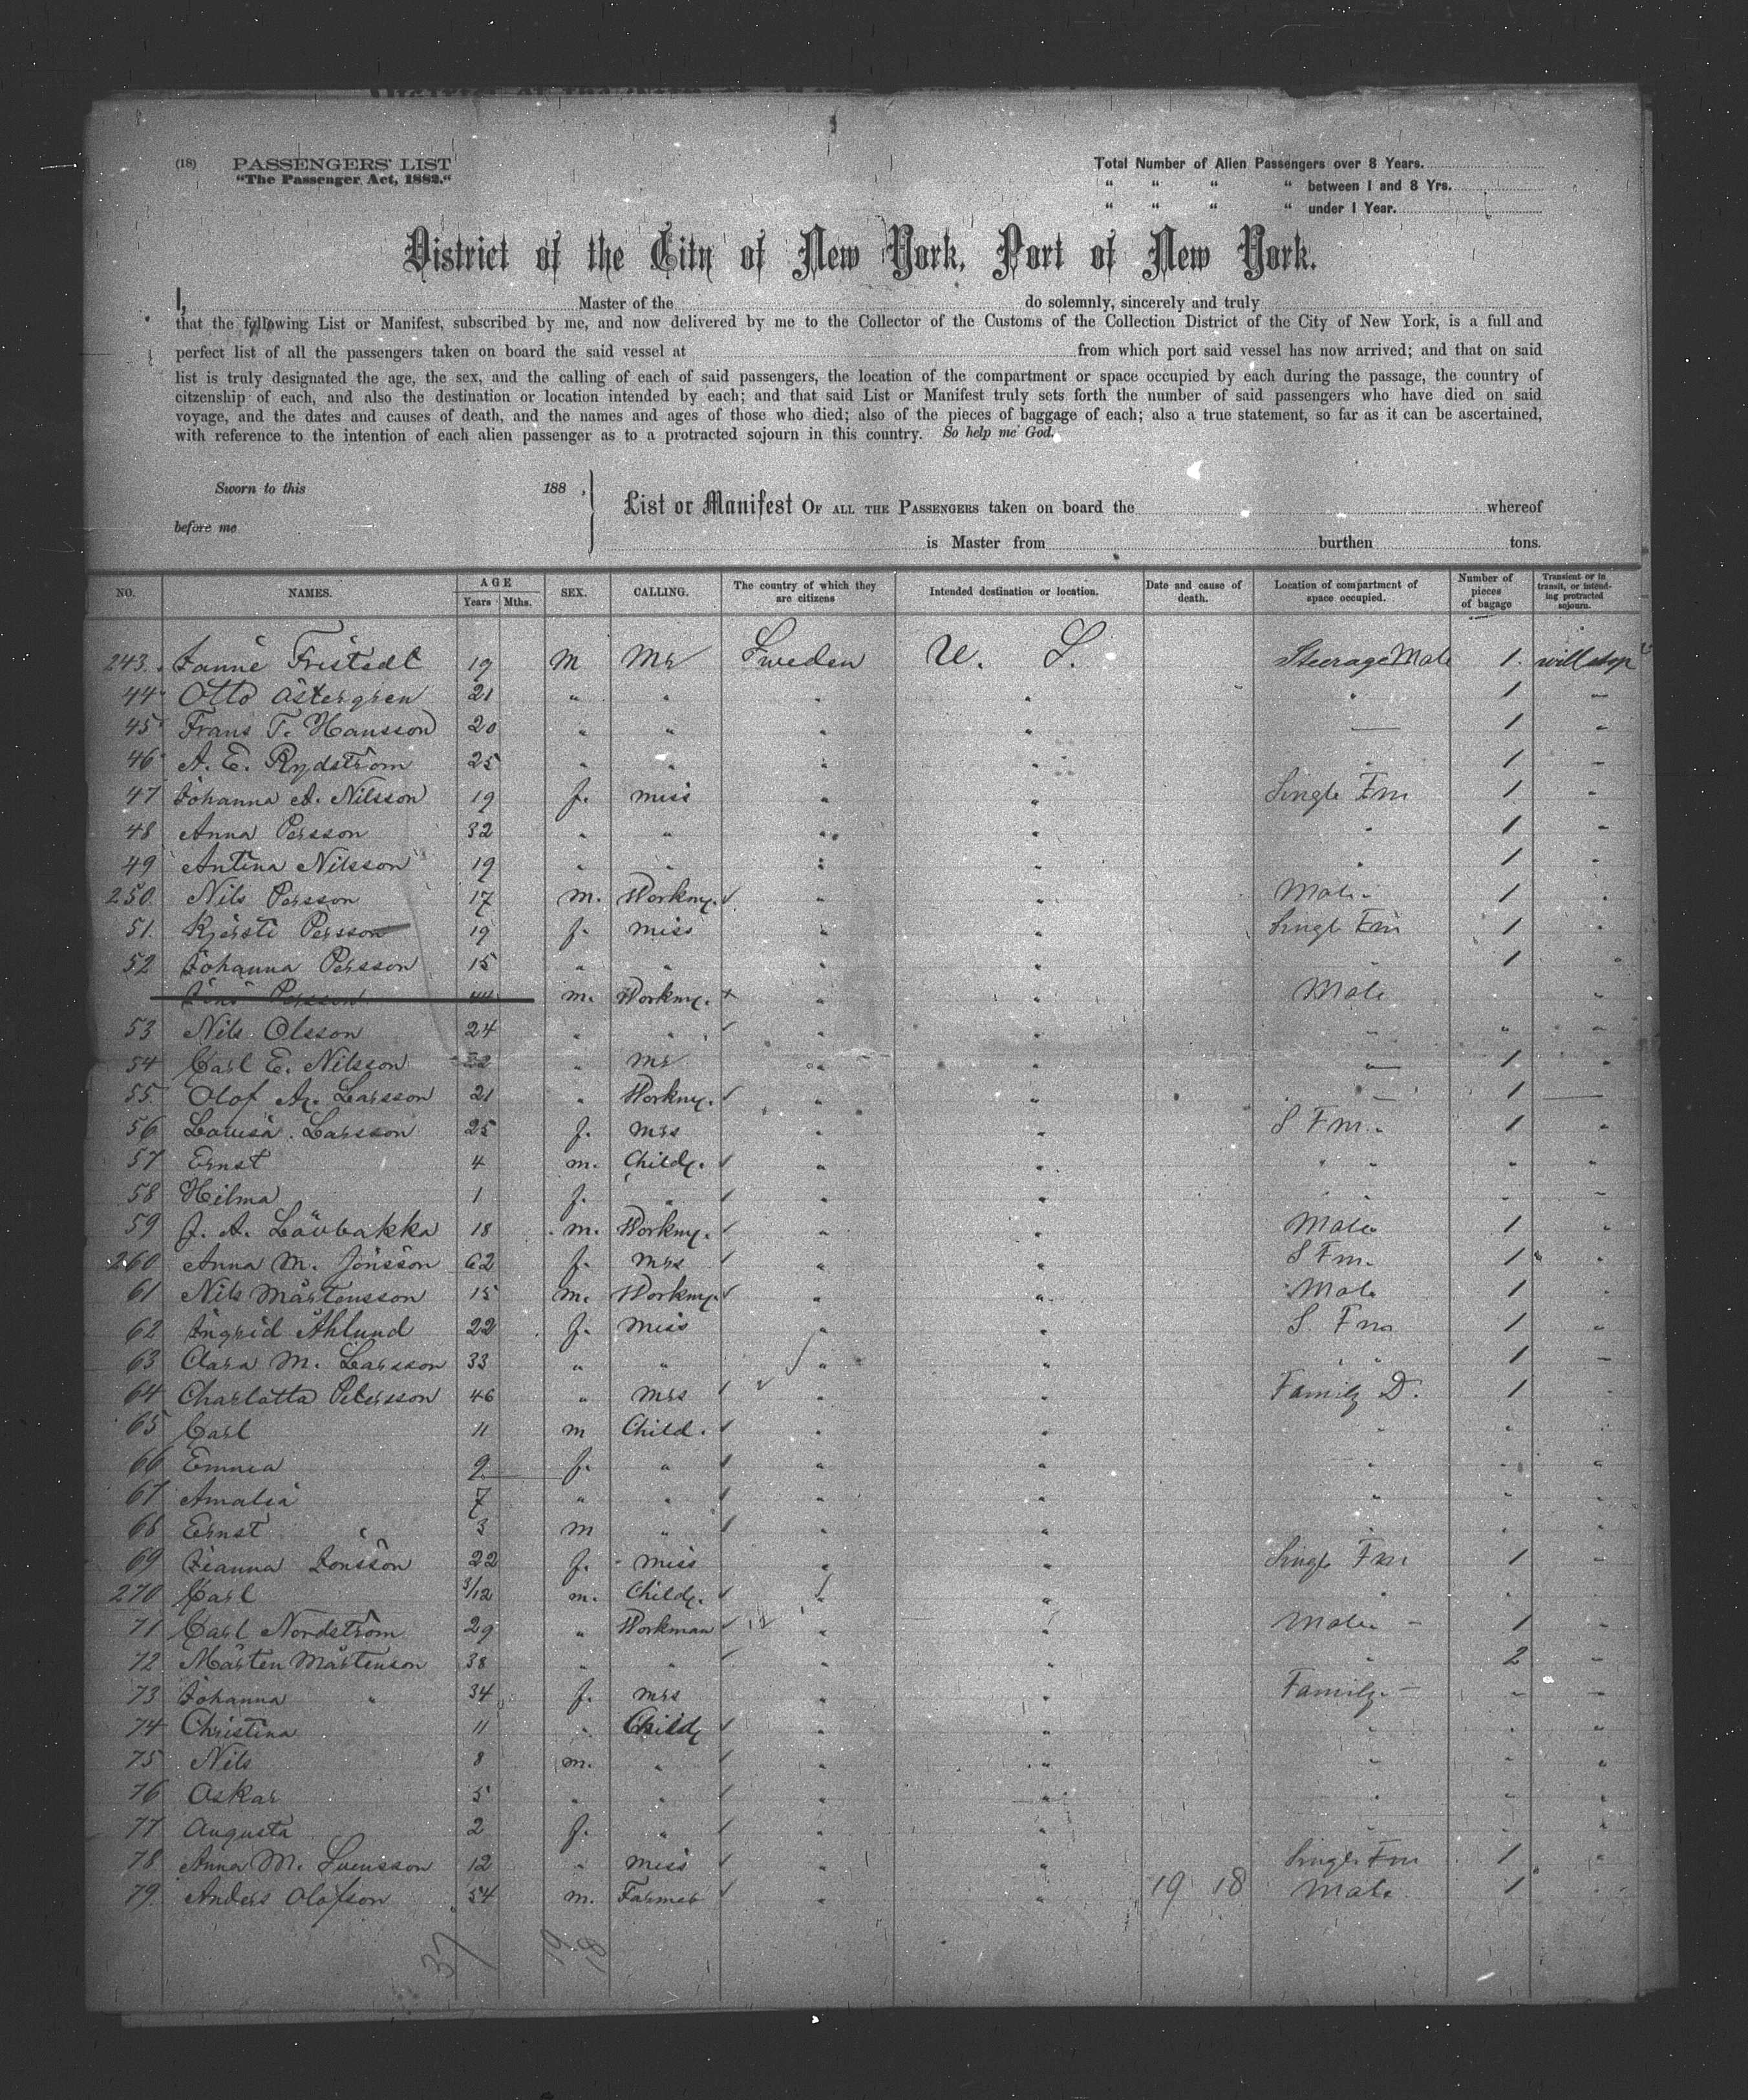 (18) PASSENGERS' LIST
"The Passenger Act, 1882."
Total Number of Alien Passengers over 8 Years.
" " " " between 1 and 8 Yrs.
" " " " under 1 Year.
District of the City of New York, Port of New York.
I, Master of the do solemnly, sincerely and truly
that the following List or Manifest, subscribed by me, and now delivered by me to the Collector of the Customs of the Collection District of the City of New York, is a full and
perfect list of all the passengers taken on board the said vessel at from which port said vessel has now arrived; and that on said
list is truly designated the age, the sex, and the calling of each of said passengers, the location of the compartment or space occupied by each during the passage, the country of
citzenship of each, and also the destination or location intended by each; and that said List or Manifest truly sets forth the number of said passengers who have died on said
voyage, and the dates and causes of death, and the names and ages of those who died; also of the pieces of baggage of each; also a true statement, so far as it can be ascertained,
with reference to the intention of each alien passenger as to a protracted sojourn in this country. So help me God.
Sworn to this 188 ,
before me
List or Manifest OF ALL THE PASSENGERS taken on board the whereof
is Master from burthen tons.
NO. NAMES. AGE Years Mths. SEX. CALLING. The country of which they are citizens Intended destination or location. Date and cause of death. Location of compartment of space occupied. Number of pieces of bagage Transient or in transit, or intending protracted sojourn.
243. Janne Fristedt 19 M Mr Sweden U. S. Steerage Male 1. will stop
44 Otto Astergren 21 " " " " " 1 "
45 Frans T. Hansson 20 " " " " — 1 "
46 A. E. Rydstrom 25 " " " " " 1 "
47 Johanna A. Nilsson 19 f. miss " " Single Fm 1 "
48 Anna Persson 32 " " " " " 1 "
49 Antina Nilsson 19 " " " " " 1 "
250. Nils Persson 17 m. Workmg. " " Male 1 "
51. Kjersti Persson 19 f. miss " " Singl Fm 1 "
52 Johanna Persson 15 " " " " " 1 "
Jöns Persson m. Workmg. + " " Male "
53 Nils Olsson 24 " " " " " " "
54 Carl E. Nilsson 22 " mr " " " 1 "
55. Olof Ag. Larsson 21 " Workmg. " " " 1 —
56 Lovisa Larsson 25 f. mrs " " S Fm. 1 "
57 Ernst 4 m. Childg. " " " " " "
58 Hilma 1 f. " " " " " " "
59 J. A. Lövbakka 18 m. Workmg. " " Male 1 "
260 Anna M. Jönsson 62 f. mrs " " S Fm. 1 "
61 Nils Mårtensson 15 m. Workmg. " " Male 1 "
62 Ingrid Åhlund 22 f. miss " " S. Fm 1 "
63 Clara M. Larsson 33 " " " " " " 1 "
64 Charlotta Petersson 46 " mrs " " Family D. 1 "
65 Carl 11 m Child. " " " " "
66 Emma 9 f. " " " " " "
67 Amalia 7 " " " " " " "
68 Ernst 3 m " " " " " "
69 Jeanna Jonsson 22 f. miss " " Singl Fm 1 "
270 Carl 3/12 m. Childg. " " " " "
71 Carl Nordström 29 " Workman " " Male 1 "
72 Mårten Mårtenson 38 " " " " " 2 "
73 Johanna " 34 f. mrs " " Family " "
74 Christina 11 " Childg " " " " "
75 Nils 8 m. " " " " " "
76 Oskar 5 " " " " " " "
77 Augusta 2 f. " " " " " "
78 Anna M. Svensson 12 " miss " " Single Fm 1 "
79. Anders Olofson 54 m. Farmer " " 19 18 Male 1 "
37 19 18